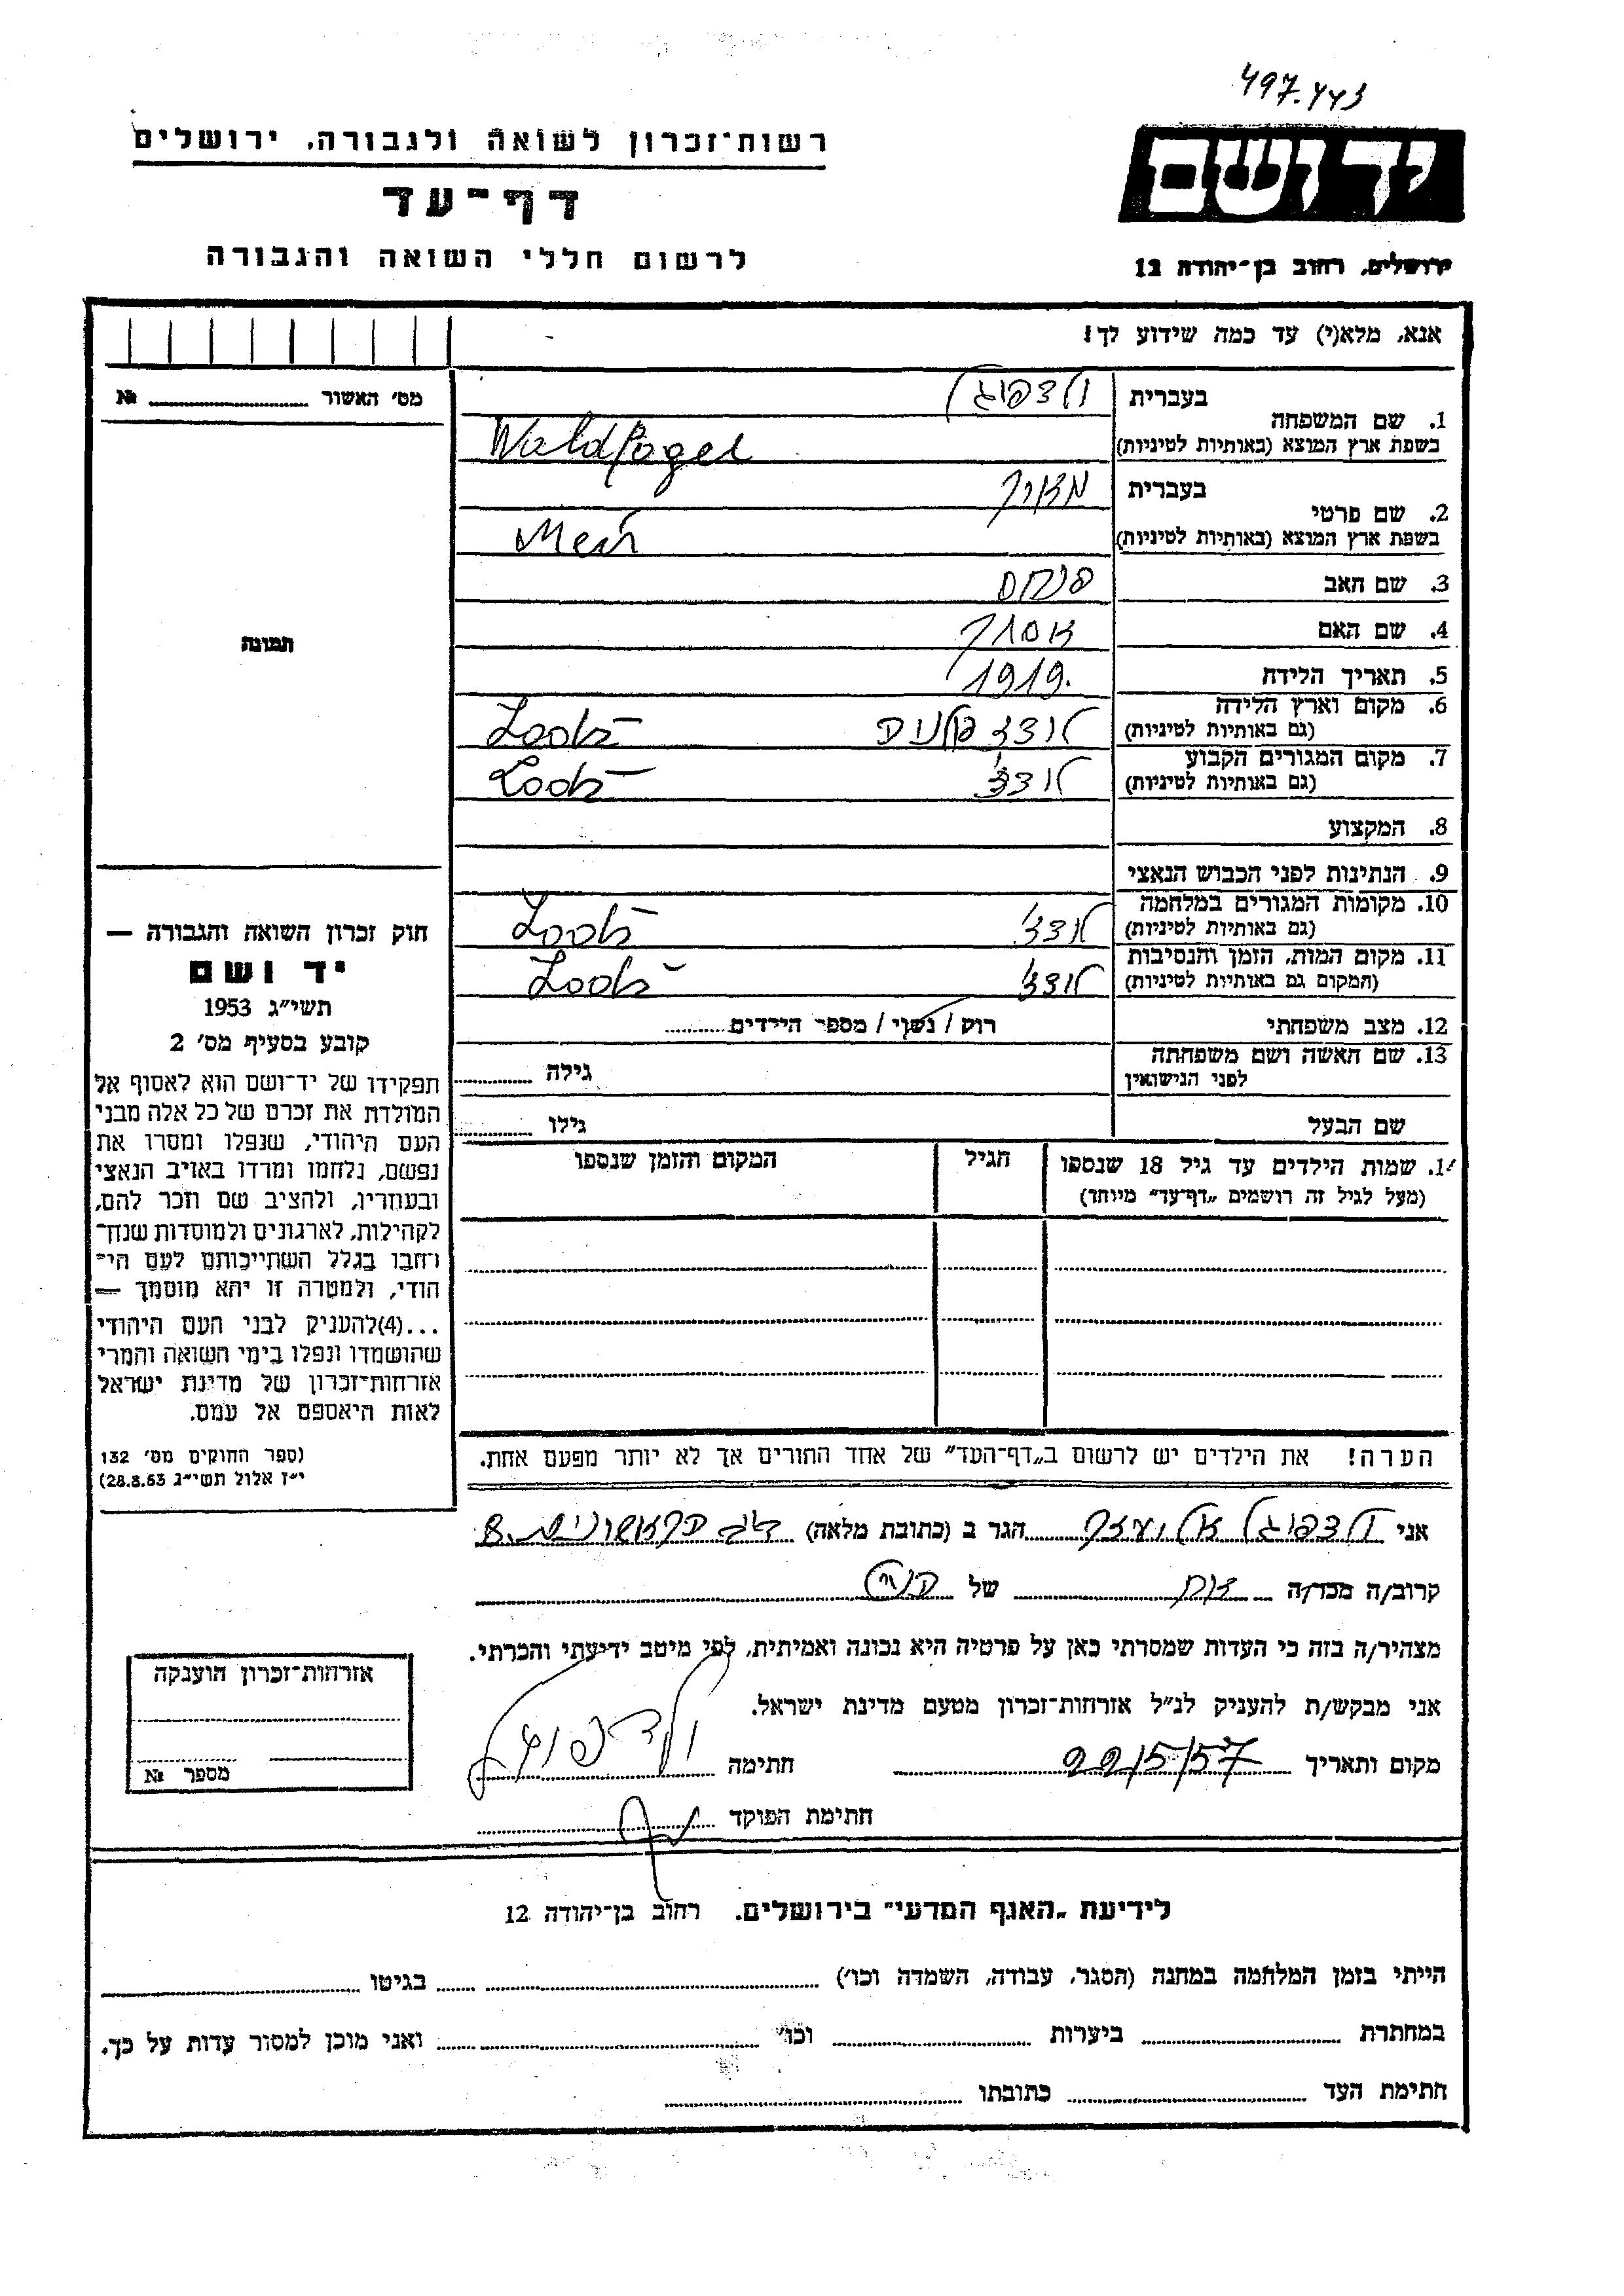 497.443
רשות־זכרון לשואה ולגבורה, ירושלים
יד ושם
דף־עד
לרשום חללי השואה והגבורה
ירושלים, רחוב בן־יהודה 12
אנא, מלא(י) עד כמה שידוע לך!
מס׳ האשור № 
1. שם המשפחה
בעברית ולדפוגל
בשפת ארץ המוצא (באותיות לטיניות) Waldfogel
2. שם פרטי
בעברית מאיר
בשפת ארץ המוצא (באותיות לטיניות) Meir
3. שם האב פנחס
4. שם האם אסתר
5. תאריך הלידה 1919.
6. מקום וארץ הלידה לודז פולניה
(גם באותיות לטיניות) Lodz
7. מקום המגורים הקבוע לודז׳
(גם באותיות לטיניות) Lodz
8. המקצוע
9. הנתינות לפני הכבוש הנאצי
10. מקומות המגורים במלחמה לודז׳
(גם באותיות לטיניות) Lodz
11. מקום המות, הזמן והנסיבות לודז׳
(המקום גם באותיות לטיניות) Lodz
12. מצב משפחתי רוק / נשוי / מספר הילדים
13. שם האשה ושם משפחתה
לפני הנישואין גילה
שם הבעל גילו
שמות הילדים עד גיל 18 שנספו הגיל המקום והזמן שנספו
(מעל לגיל זה רושמים „דף־עד״ מיוחד)
הערה! את הילדים יש לרשום ב„דף־העד״ של אחד ההורים אך לא יותר מפעם אחת.
תמונה
חוק זכרון השואה והגבורה —
יד ושם
תשי״ג 1953
קובע בסעיף מס׳ 2
תפקידו של יד־ושם הוא לאסוף אל
המולדת את זכרם של כל אלה מבני
העם היהודי, שנפלו ומסרו את
נפשם, נלחמו ומרדו באויב הנאצי
ובעוזריו, ולהציב שם וזכר להם,
לקהילות, לארגונים ולמוסדות שנח־
רחבו בגלל השתייכותם לעם הי־
הודי, ולמטרה זו יהא מוסמך —
...(4)להעניק לבני העם היהודי
שהושמדו ונפלו בימי השואה והמרי
אזרחות־זכרון של מדינת ישראל
לאות היאספם אל עמם.
(ספר החוקים מס׳ 132
י״ז אלול תשי״ג 28.8.53)
אני ולדפוגל אליעזר הגר ב (כתובת מלאה) 8
קרוב/ה מכר/ה אח של
מצהיר/ה בזה כי העדות שמסרתי כאן על פרטיה היא נכונה ואמיתית, לפי מיטב ידיעתי והכרתי.
אני מבקש/ת להעניק לנ״ל אזרחות־זכרון מטעם מדינת ישראל.
מקום ותאריך 22/5/57 חתימה ולדפוגל
חתימת הפוקד
אזרחות־זכרון הוענקה
מספר №
לידיעת „האגף המדעי״ בירושלים, רחוב בן־יהודה 12
הייתי בזמן המלחמה במחנה (הסגר, עבודה, השמדה וכו׳) בגיטו
במחתרת ביערות וכו׳ ואני מוכן למסור עדות על כך.
חתימת העד כתובתו